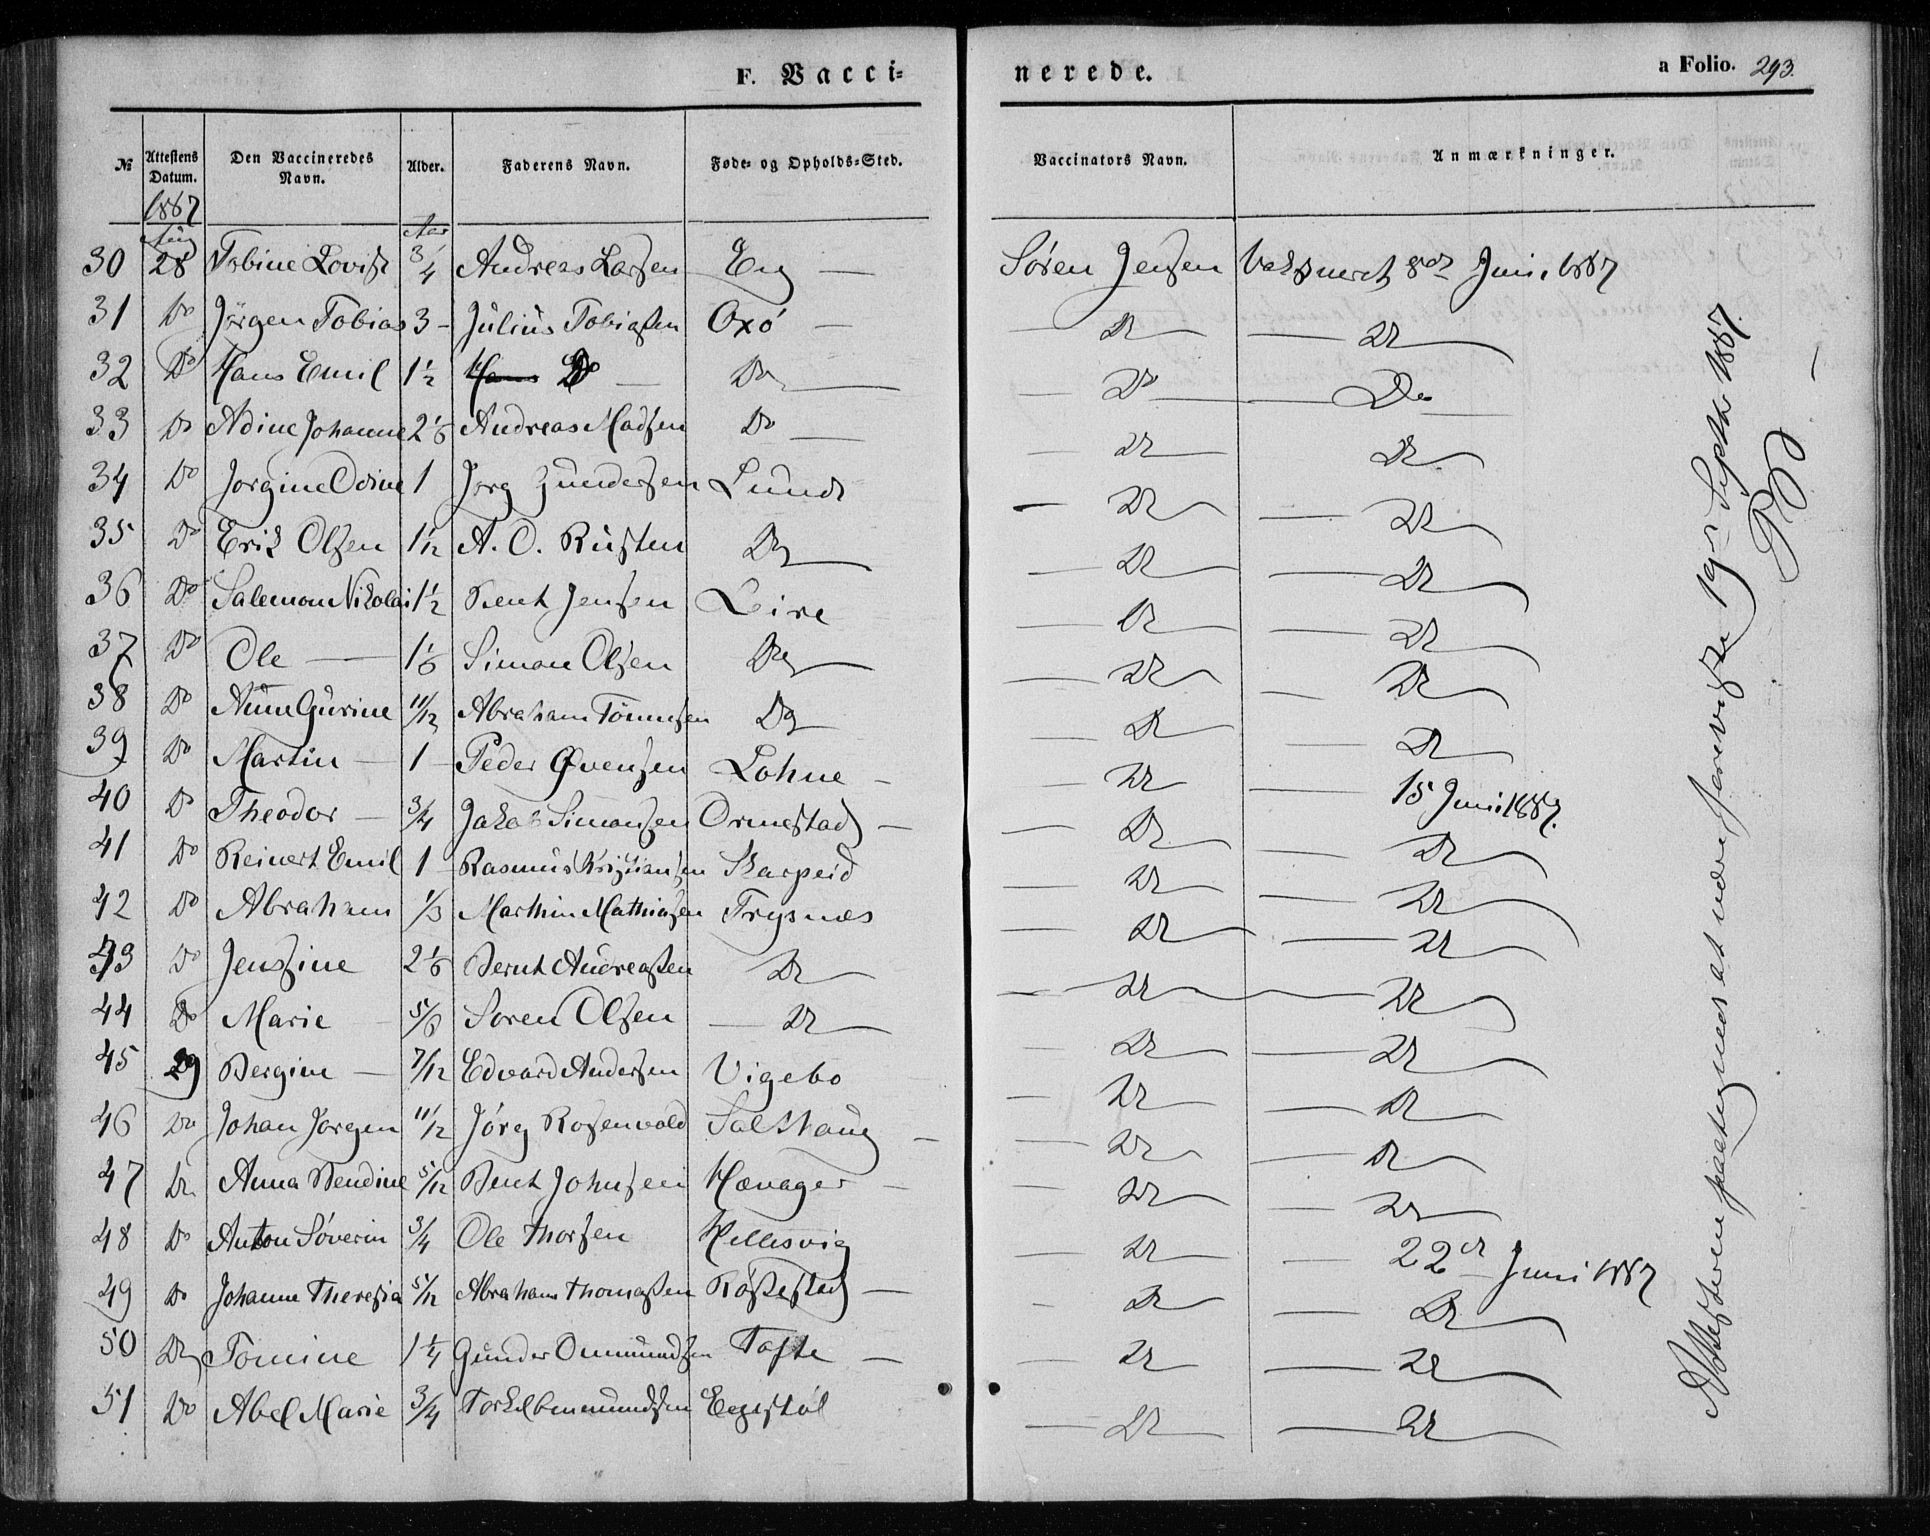 F. Vacci-
nerede.
a Folio. 293.
№ Attestens Datum. Den Vaccineredes Navn. Alder. Faderens Navn. Føde- og Opholds-Sted. Vaccinators Navn. Anmærkninger.
1867 Aar
Aug
30 28 Tobine Lovise 3/4 Andreas Larsen Eeg — Sören Jensen Vaksineret 8de Juni 1867
31 Do Jörgen Tobias 3 - Julius Tobiassen Oxö — Do Do
32 Do Hans Emil 1 1/2 Do — Do Do Do
33 Do Adine Johanne 2 1/6 Andreas Madsen Do Do Do
34 Do Jorgine Odine 1 Jörg Gundersen Lunde Do Do
35 Do Erik Olsen 1 1/12 A. O. Rusten Do Do Do
36 Do Salemon Nikolai 1 1/2 Bent Jensen Leire Do Do
37 Do Ole — 1 1/6 Simon Olsen Do Do Do
38 Do Anne Gurine 11/12 Abraham Tönnesen Do Do Do
39 Do Martin — 1 - Peder Evensen Lohne - Do Do
40 Do Theodor — 3/4 Jakob Simonsen Ormestad — Do 15 Juni 1867.
41 Do Reinert Emil 1 - Rasmus Kristiansen Skarpeid Do Do
42 Do Abraham 1/3 Marthin Mathiasen Trysnæs Do Do
43 Do Jenssine 2 1/6 Bernt Andreassen Do Do Do
44 Do Marie — 5/6 Sören Olsen — Do Do Do
45 29 Bergine — 7/12 Edvard Andersen Vigebo Do Do
46 Do Johan Jörgen 11/12 Jörg Rosenvold Salthaug — Do Do
47 Do Anna Bendine 5/12 Bent Johnsen Hævager — Do Do
48 Do Anton Söverin 3/4 Ole Thorsen Hellesvig Do Do
49 Do Johanne Theresia 5/12 Abraham Thomassen Rössestad — Do 22de Juni 1867
50 Do Tomine 1 1/4 Gunder Ommundsen Tofte — Do Do
51 Do Abel Marie 3/4 Torkel Ommundsen Eegestöl Do Do
Do Do
Attesterne paategnede at være foreviste 19de Septbr 1867.